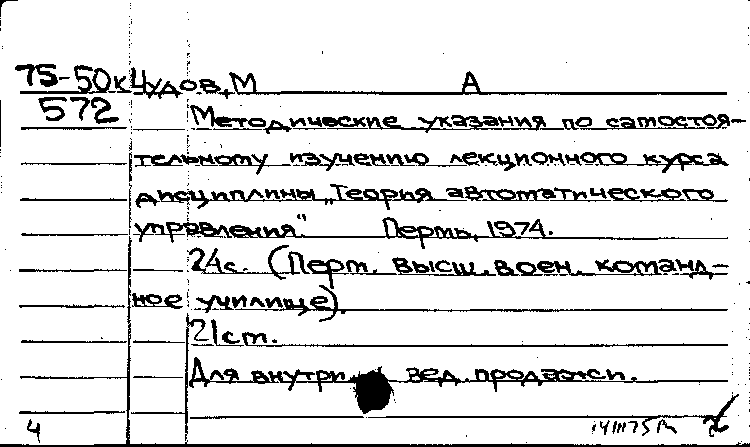 75-50к Чудов, М А
572 Методические указания по самостоя-
тельному изучению лекционного курса
дисциплины „Теория автоматического
управления". Пермь, 1974.
24с. (Перм. высш. воен. команд-
ное училище).
21ст.
Для внутри вед. продажи.
4